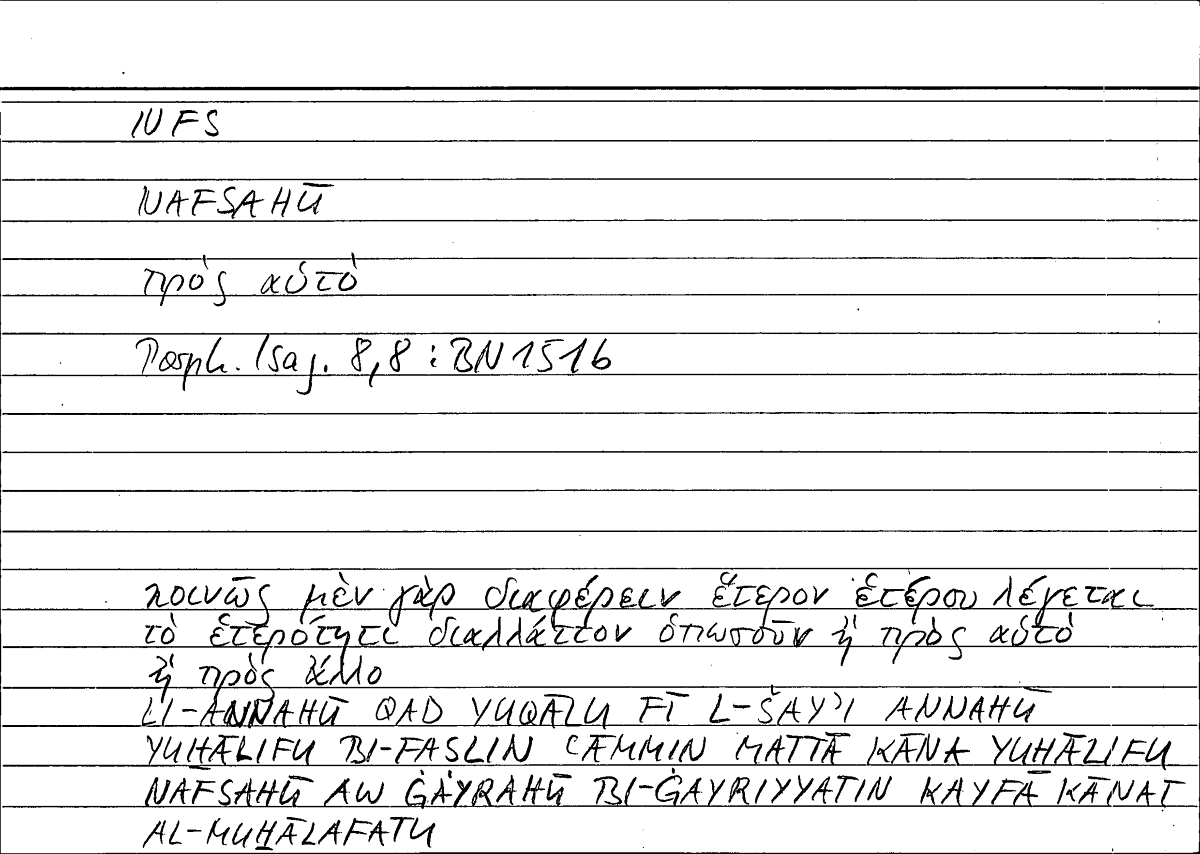 NFS
NAFSAHŪ
πρὸς αὑτὸ
Porph. Isag. 8,8 : BN 1516
κοινῶς μὲν γὰρ διαφέρειν ἕτερον ἑτέρου λέγεται
τὸ ἑτερότητι διαλλάττον ὁπωσοῦν ἢ πρὸς αὑτὸ
ἢ πρὸς ἄλλο
LI-ANNAHŪ QAD YUQĀLU FĪ L-ŠAY'I ANNAHŪ
YUḪĀLIFU BI-FASLIN ʿĀMMIN MATTĀ KĀNA YUḪĀLIFU
NAFSAHŪ AW ĠAYRAHŪ BI-ĠAYRIYYATIN KAYFĀ KĀNAT
AL-MUḪĀLAFATU